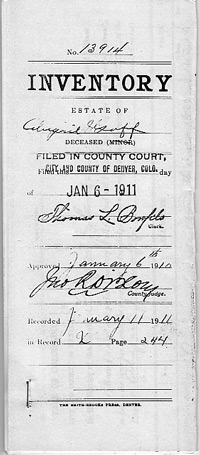 No. 13914
INVENTORY
ESTATE OF
DECEASED (MINOR)
FILED IN COUNTY COURT,
CITY AND COUNTY OF DENVER, COLO.
Filed this day
of JAN 6 - 1911
Thomas L.
Clerk.
Approved January 6th 1910
Jno R Dixon
County Judge.
Recorded January 11 1911
in Record 2 Page 244
THE SMITH-BROOKS PRESS, DENVER.